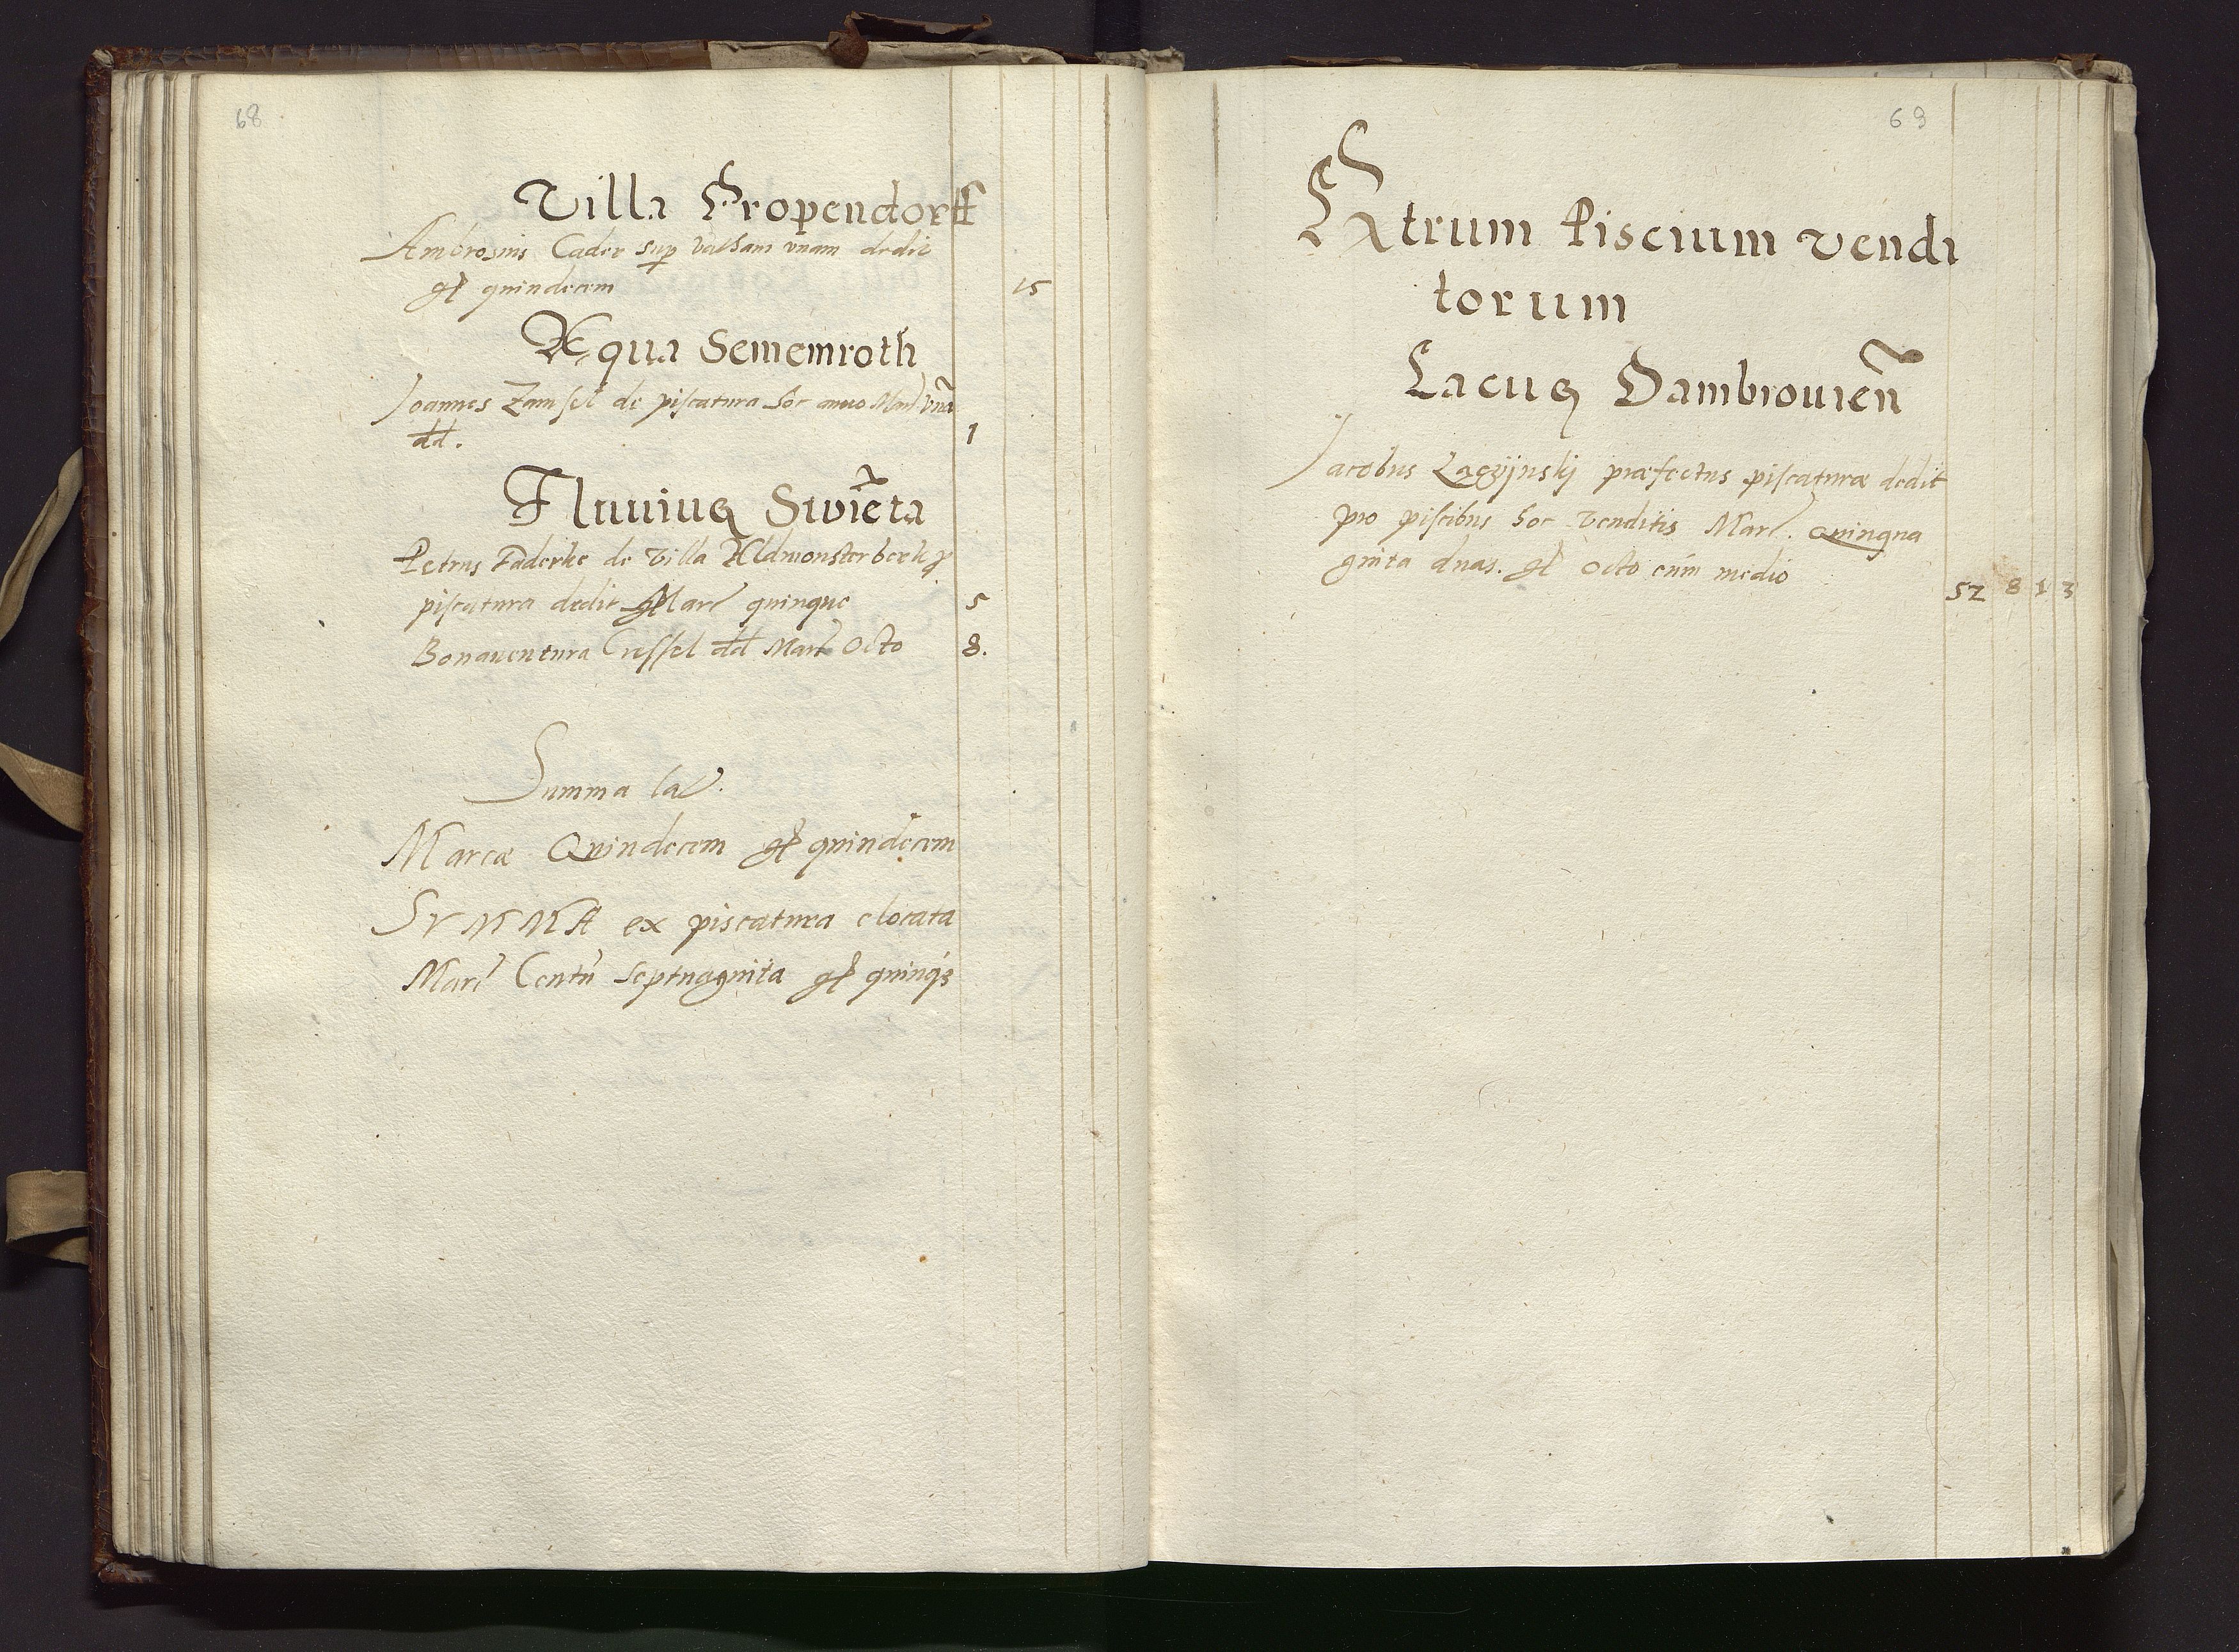 68
Villa Gropendorff
Ambrosius Cader sup vatham vnam dedit
gr quindecem 15
Aqua Sememroth
Joannes Zamsel de piscatura hoc anno Mar vnā
dd. 1
Fluuius Swiēta
Petrus Faderke de Villa Aldmonsterberk p
piscatura dedit Marc quinque 5
Bonauentura Cressel dd Marc Octo 8.
Summa la.
Marcæ Quindecem gr quindecem
SVMMA ex piscatura elocata
Marc Centū septuaginta gr quinqȝ
69
Extrum Piscium vendi
torum
Lacus Dambrouien̄
Jacobus præfectus piscaturæ dedit
pro piscibus hoc venditis Marc. Quinqua
ginta duas. gr Octo cūm medio
52 8 1 3